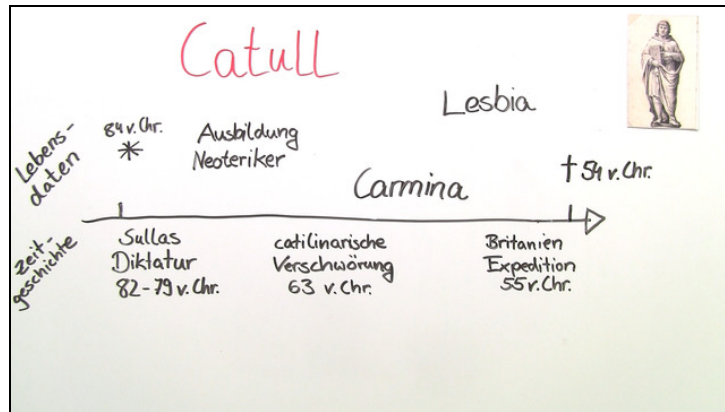 Catull
Lesbia
Lebens-
daten
84 v. Chr.
*
Ausbildung
Neoteriker
Carmina
† 54 v. Chr.
Zeit-
geschichte
Sullas
Diktatur
82-79 v. Chr.
catilinarische
Verschwörung
63 v. Chr.
Britanien
Expedition
55 v. Chr.